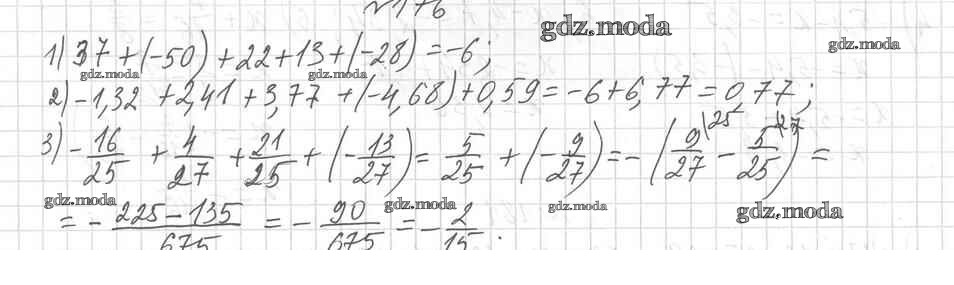 №176
gdz.moda
1) 37 + (-50) + 22 + 13 + (-28) = -6;
gdz.moda
gdz.moda
gdz.moda
2) -1,32 + 2,41 + 3,77 + (-4,68) + 0,59 = -6 + 6,77 = 0,77;
3) - 16/25 + 4/27 + 21/25 + (- 13/27) = 5/25 + (- 9/27) = - (9/27 |25 - 5/25 |27) =
gdz.moda
gdz.moda
gdz.moda
gdz.moda
= - 225 - 135/675 = - 90/675 = - 2/15.